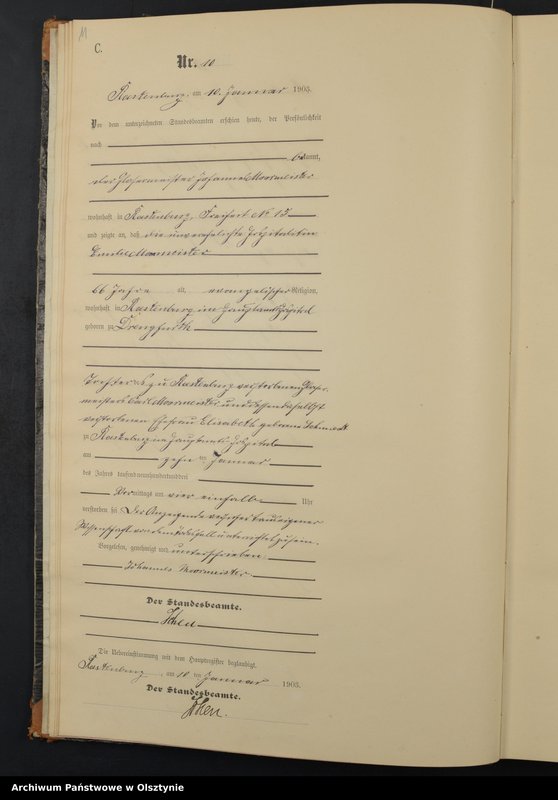 M
C.
Nr. 10
Rastenburg, am 10. Januar 1903.
Vor dem unterzeichneten Standesbeamten erschien heute, der Persönlichkeit
nach
bekannt,
der Glasermeister Johannes Moormeister
wohnhaft in Rastenburg, Freiheit No 13
und zeigte an, daß die unverehelichte Hospitalitin
Emilie Moormeister
66 Jahre alt, evangelischer Religion,
wohnhaft in Rastenburg im Hauptamts Hospital
geboren zu Drengfurth
Tochter des zu Rastenburg verstorbenen Glaser-
meisters Carl Moormeister und dessen daselbst
verstorbenen Ehefrau Elisabeth geborene
zu Rastenburg im Hospital
am zehnten Januar
des Jahres tausendneunhundertunddrei
Vormittags um vier einhalb Uhr
verstorben sei. Der Anzeigende versicherte aus eigener
Wissenschaft von dem Todesfall unterrichtet zu sein.
Vorgelesen, genehmigt und unterschrieben
Johannes Moormeister.
Der Standesbeamte.
Die Uebereinstimmung mit dem Hauptregister beglaubigt.
Rastenburg, am 10 ten Januar 1903.
Der Standesbeamte.
Archiwum Państwowe w Olsztynie